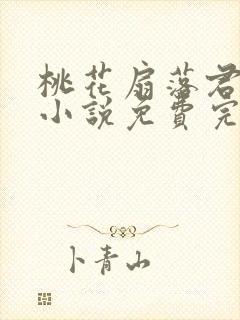 桃花扇落君
小說免費完
卜青山